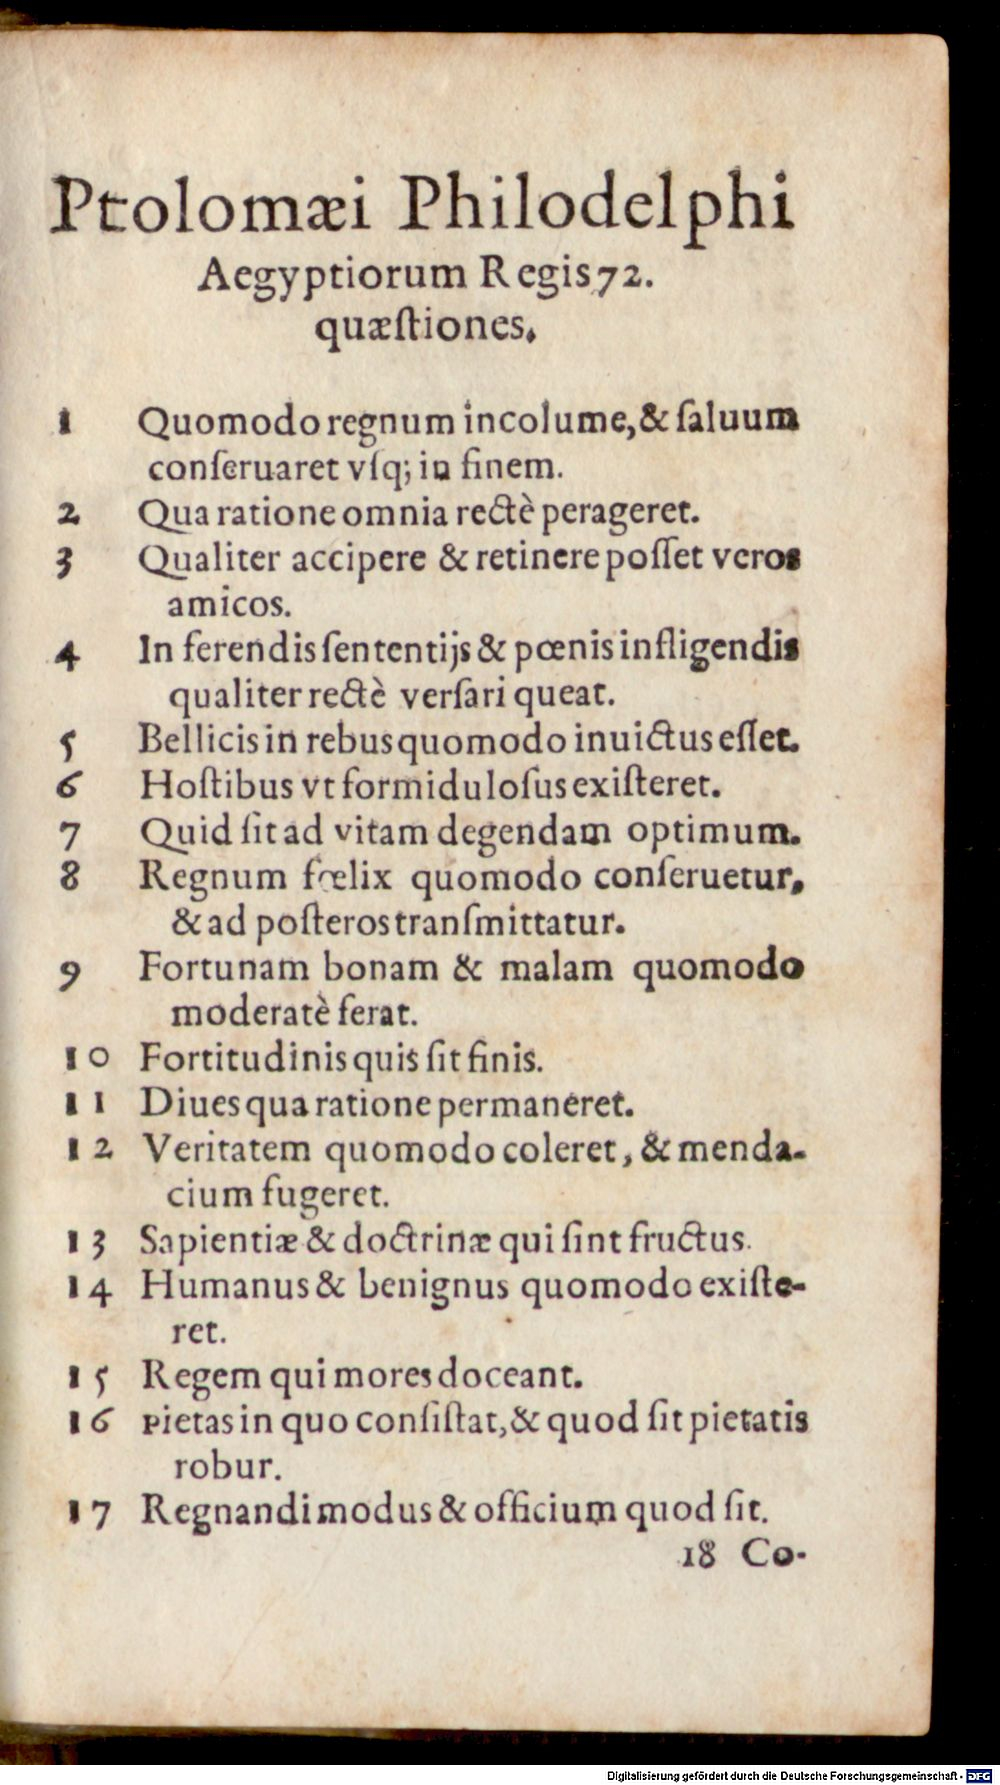 Ptolomæi Philodelphi
Aegyptiorum Regis 72.
quæſtiones.
1 Quomodo regnum incolume, & ſaluum
conſeruaret vſq; in finem.
2 Qua ratione omnia rectè perageret.
3 Qualiter accipere & retinere poſſet veros
amicos.
4 In ferendis ſententijs & pœnis infligendis
qualiter rectè verſari queat.
5 Bellicis in rebus quomodo inuictus eſſet.
6 Hoſtibus vt formiduloſus exiſteret.
7 Quid ſit ad vitam degendam optimum.
8 Regnum fœlix quomodo conſeruetur,
& ad poſteros tranſmittatur.
9 Fortunam bonam & malam quomodo
moderatè ferat.
10 Fortitudinis quis ſit finis.
11 Diues qua ratione permaneret.
12 Veritatem quomodo coleret, & menda-
cium fugeret.
13 Sapientiæ & doctrinæ qui ſint fructus.
14 Humanus & benignus quomodo exiſte-
ret.
15 Regem qui mores doceant.
16 Pietas in quo conſiſtat, & quod ſit pietatis
robur.
17 Regnandi modus & officium quod ſit.
18 Co-
Digitalisierung gefördert durch die Deutsche Forschungsgemeinschaft - DFG